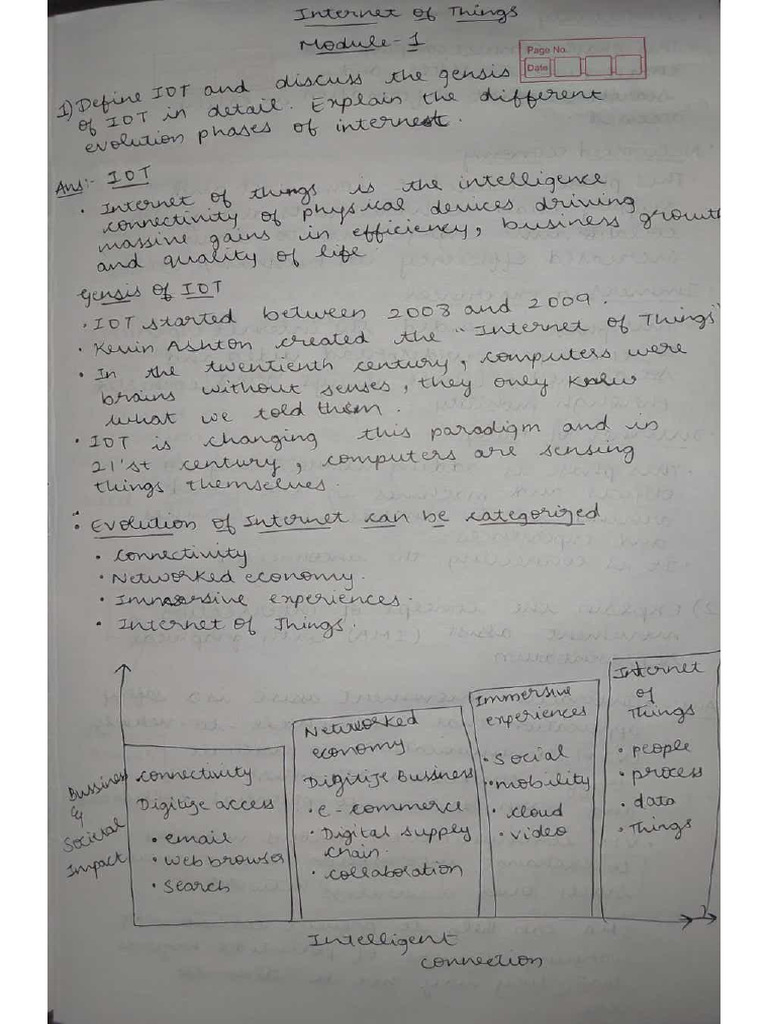 Internet of Things
Module-1
Page No.
Date
1) Define IOT and discuss the gensis
of IOT in detail. Explain the different
evolution phases of internet.
Ans:- IOT
• Internet of things is the intelligence
connectivity of physical devices driving
massive gains in efficiency, business growth
and quality of life
Gensis of IOT
• IOT started between 2008 and 2009.
• Kevin Ashton created the "Internet of Things"
• In the twentieth century, computers were
brains without senses, they only knew
what we told them.
• IOT is changing this paradigm and in
21'st century, computers are sensing
things themselves.
• Evolution of Internet can be categorized
• Connectivity
• Networked economy.
• Immersive experiences.
• Internet of Things.
Bussiness
&
Societal
Impact
Connectivity
Digitize access
• email
• Web browser
• Search
Networked
economy
Digitize Bussiness
• e-commerce
• Digital supply
chain.
• collaboration
Immersive
experiences
• Social
• mobility
• cloud
• video
Internet
of
Things
• people
• process
• data
• Things
Intelligent
connection